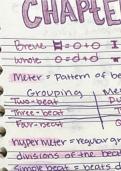 CHAPTE
Breve = o + o
Whole = d + d
Meter = Pattern of be
Grouping Me
Two-beat D
Three-beat T
Four-beat Q
hypermeter = regular gr
divisions of the beat
Simple beat = beats d